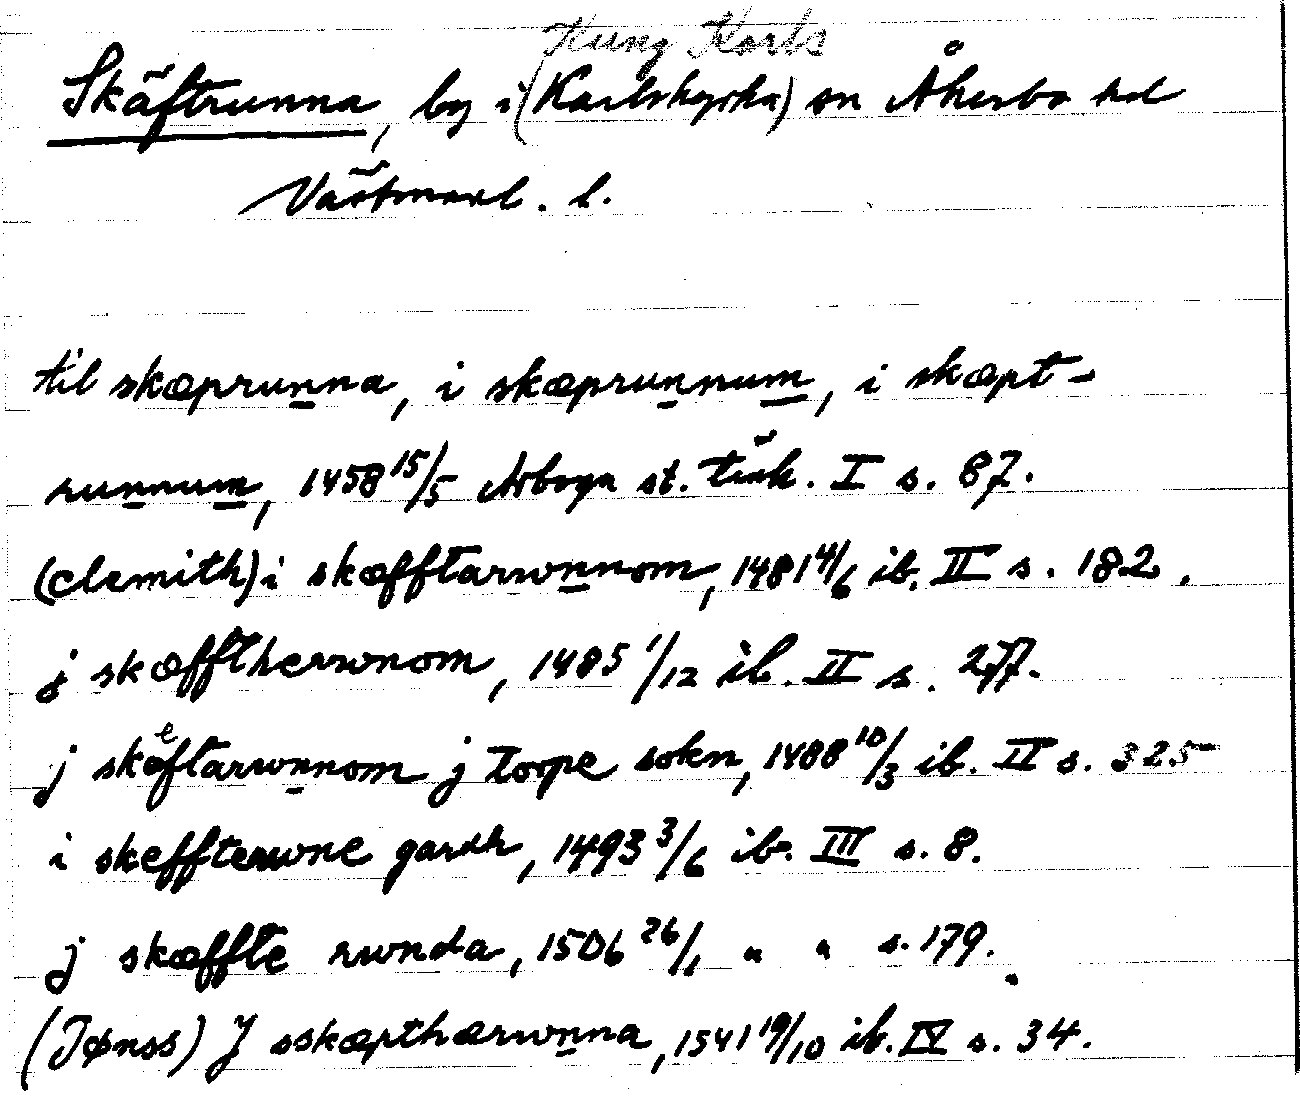 Kung Karls
Skäftrunna, by i (Karlskyrka) sn Åkerbo hd
Västmanl. l.
til skæprunna, i skæprunnum, i skæpt-
runnum, 1458 15/5 Arboga st. tänk. I s. 87.
(clemith) i skæfftarwnnom, 1481 4/6 ib. II s. 182.
j skæfftherwnom, 1485 1/12 ib. II s. 277.
j skaͤftarwnnom j torpe sokn, 1488 10/3 ib. II s. 325
i skeffterwne gardh, 1493 3/6 ib. III s. 8.
j skæffte rwnda, 1506 26/1 " " s. 179.
(Jønss) J sskæpthærwnna, 1541 19/10 ib. IV s. 34.